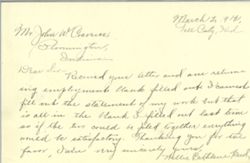 March 2, 1941
Tell City, Ind
Mr. John W. Cravens
Bloomington,
Indiana
Dear Sir
Received your letter and am return
ing employment blank filled out. I cannot
fill out the statement of my work but that
is all in the blank I filled out last time
so if the two could be filed together everything
would be satisfactory. Thanking you for the
favor, I am very sincerely yours,